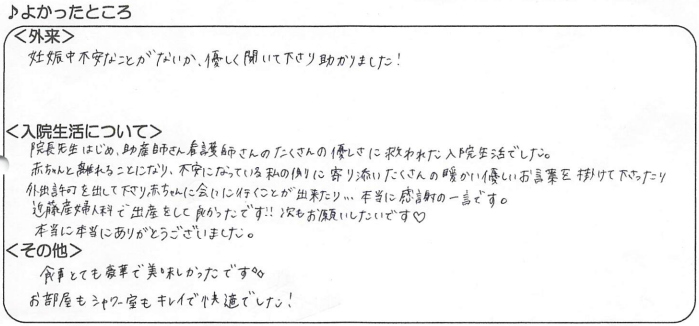 ♪よかったところ
<外来>
妊娠中不安なことがないか、優しく聞いて下さり助かりました!
<入院生活について>
院長先生はじめ、助産師さん看護師さんのたくさんの優しさに救われた入院生活でした。
赤ちゃんと離れることになり、不安になっている私の側に寄り添いたくさんの暖かい優しいお言葉を掛けて下さったり
外出許可を出して下さり赤ちゃんに会いに行くことが出来たり… 本当に感謝の一言です。
近藤産婦人科で出産をして良かったです!! 次もお願いしたいです♡
本当に本当にありがとうございました。
<その他>
食事とても豪華で美味しかったです
お部屋もシャワー室もキレイで快適でした!